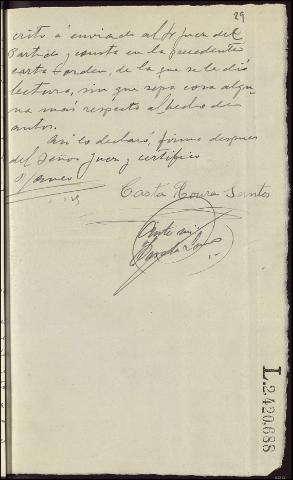 29
crito á enviado al Sr Juez del
Partido y consta en la precedente
carta-orden, de la que se le dió
lectura, sin que sepa cosa algu-
na más respecto al hecho de
autos.
Asi lo declaró, firma despues
del Señor Juez y certifico
Casta Roura Santos
Ante mi
L.2420.688